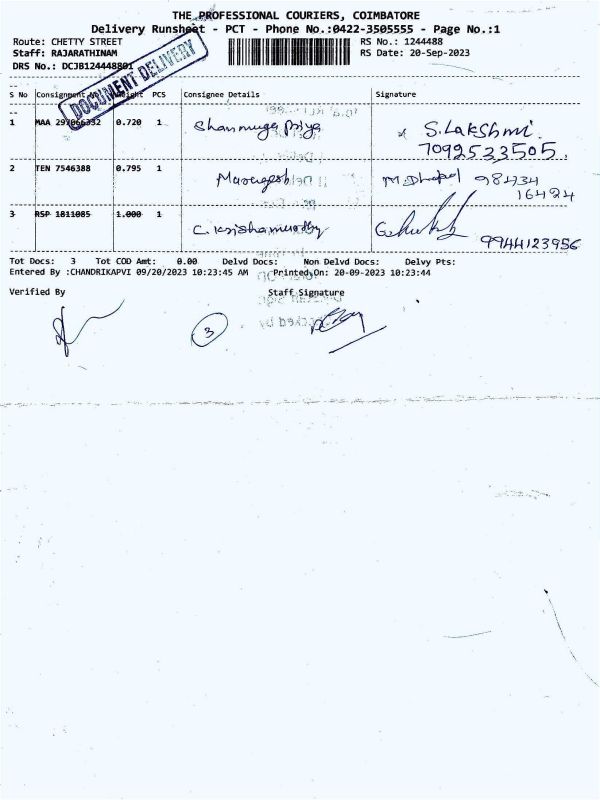 THE PROFESSIONAL COURIERS, COIMBATORE
Delivery Runsheet - PCT - Phone No.:0422-3505555 - Page No.:1
Route: CHETTY STREET RS No.: 1244488
Staff: RAJARATHINAM RS Date: 20-Sep-2023
DRS No.: DCJB124448801
DOCUMENT DELIVERY
S No Consignment No Weight PCS Consignee Details Signature
1 MAA 297066332 0.720 1 Shanmuga priya S. Lakshmi
7092533505
2 TEN 7546388 0.795 1 Murugesh 98434
16424
3 RSP 1811085 1.000 1 C. Krishamurothy
9944123956
Tot Docs: 3 Tot COD Amt: 0.00 Delvd Docs: Non Delvd Docs: Delvy Pts:
Entered By :CHANDRIKAPVI 09/20/2023 10:23:45 AM Printed On: 20-09-2023 10:23:44
Verified By Staff Signature
3